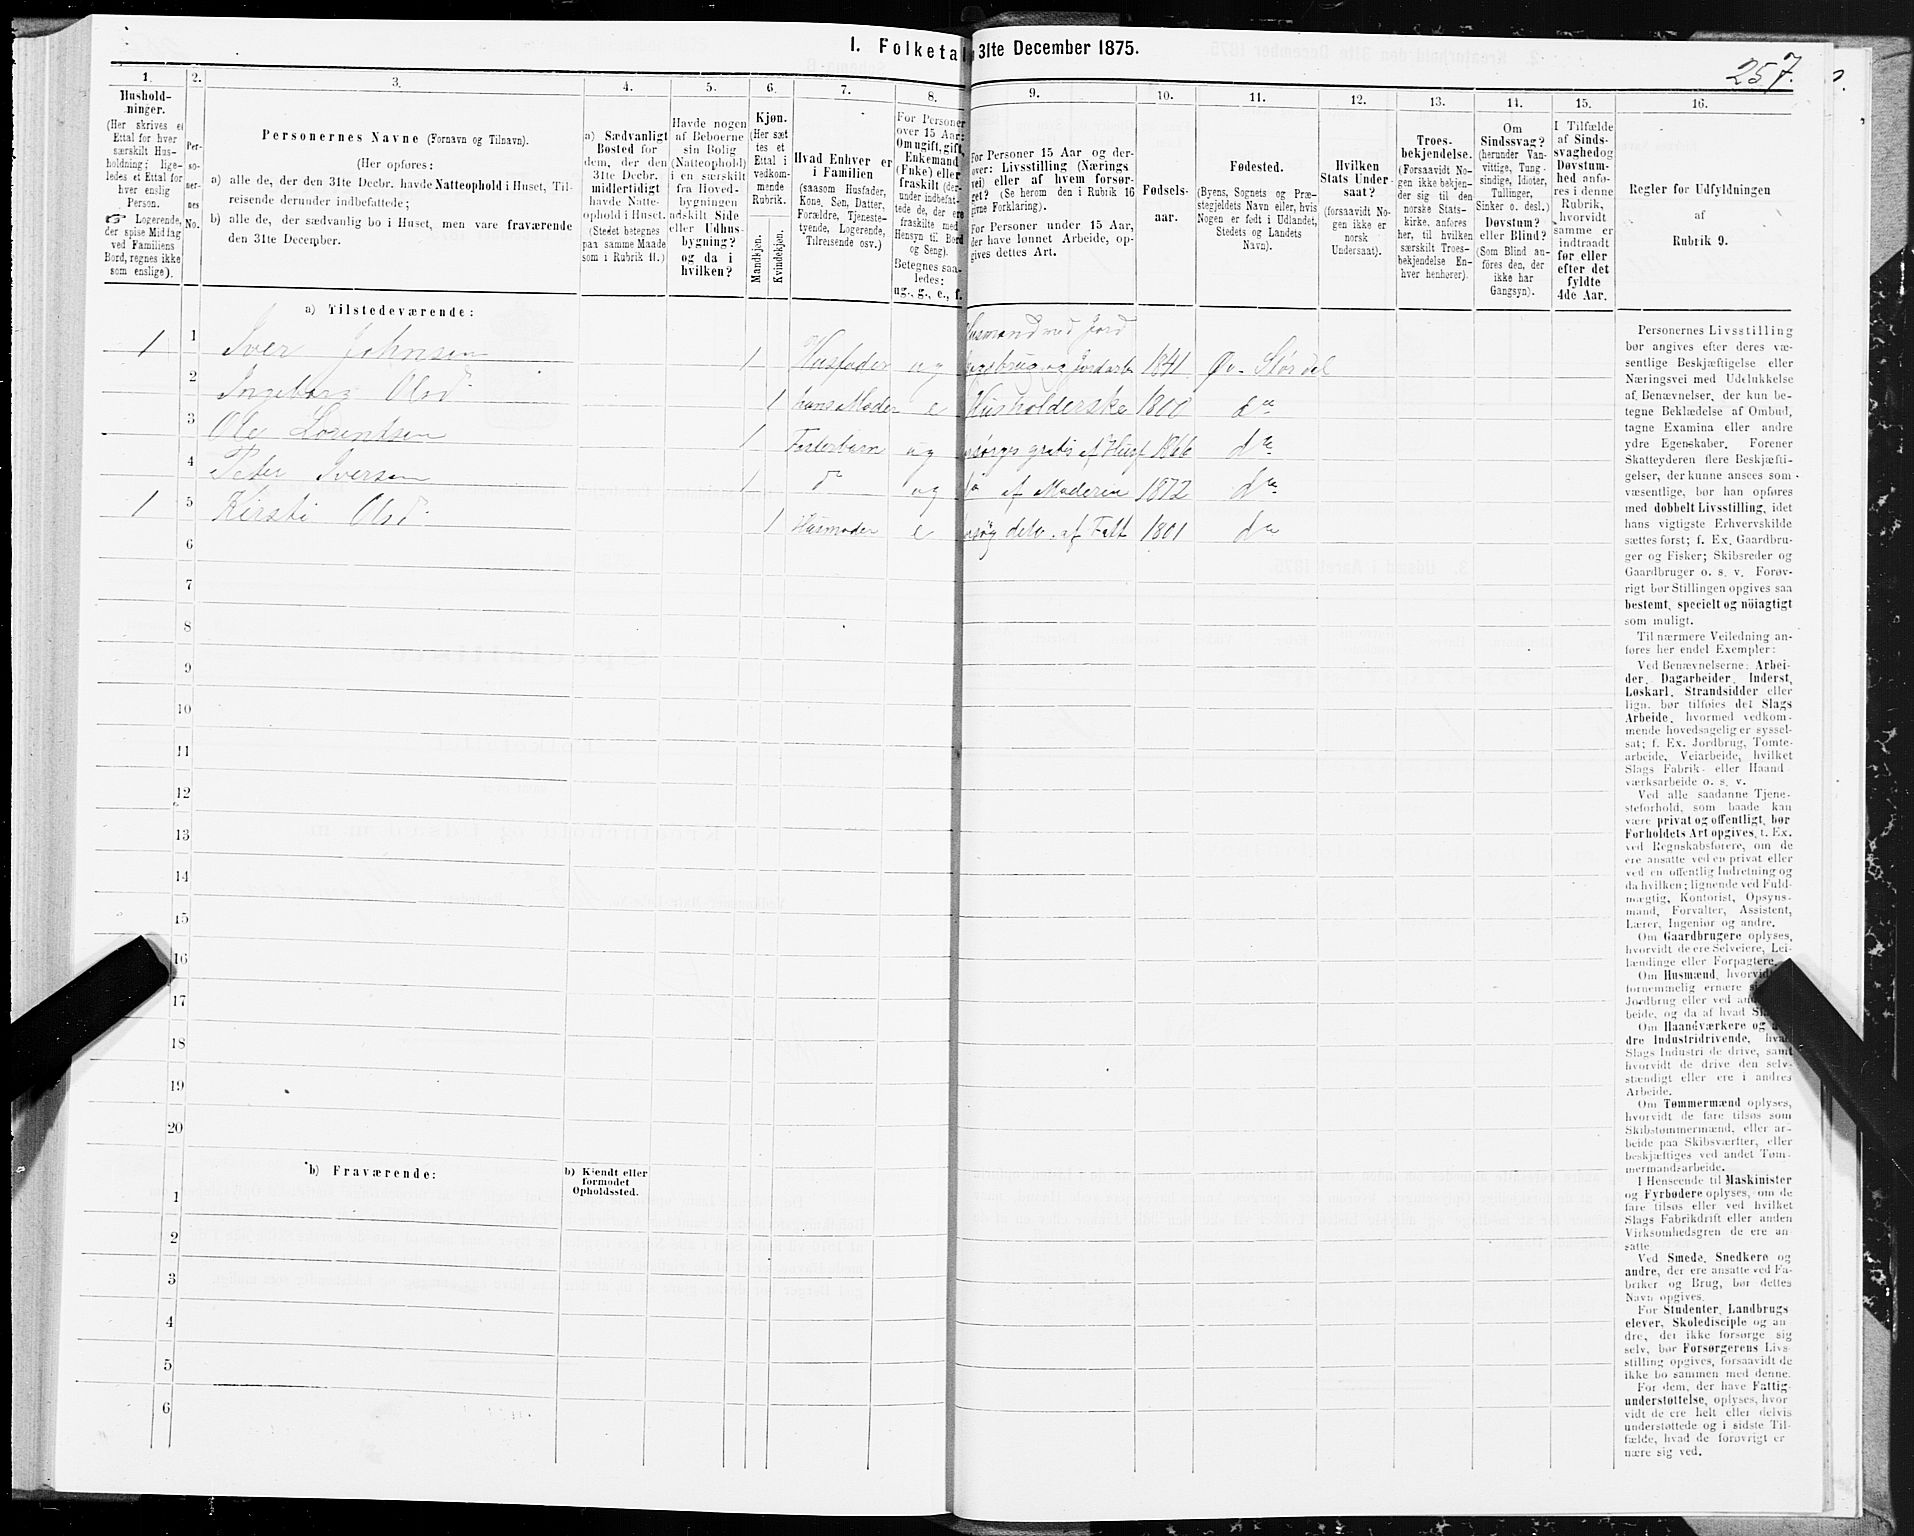 I. Folketal 31te December 1875.
257.
1.
2.
3.
4.
5.
6.
7.
8.
9.
10.
11.
12.
13.
14.
15.
16.
Hushold-
ninger.
(Her skrives et
Ettal for hver
særskilt Hus-
holdning; lige-
ledes et Ettal for
hver enslig
Person.
☞ Logerende,
der spise Middag
ved Familiens
Bord, regnes ikke
som enslige).
Per-
so-
ner-
nes
No.
Personernes Navne (Fornavn og Tilnavn).
(Her opføres:
a) alle de, der den 31te Decbr. havde Natteophold i Huset, Til-
reisende derunder indbefattede;
b) alle de, der sædvanlig bo i Huset, men vare fraværende
den 31te December.
a) Sædvanligt
Bosted for
dem, der den
31te Decbr.
midlertidigt
havde Natte-
ophold i Huset.
(Stedet betegnes
paa samme Maade
som i Rubrik 11.)
Havde nogen
af Beboerne
sin Bolig
(Natteophold)
i en særskilt
fra Hoved-
bygningen
adskilt Side
eller Udhus-
bygning?
og da i
hvilken?
Kjøn.
(Her sæt-
tes et
Ettal i
vedkom-
mende
Rubrik.
Mandkjøn.
Kvindekjøn.
Hvad Enhver er
i Familien
(saasom Husfader,
Kone, Søn, Datter,
Forældre, Tjeneste-
tyende, Logerende,
Tilreisende osv.)
For Personer
over 15 Aar:
Om ugift, gift,
Enkemand
(Enke) eller
fraskilt (der-
under indbefat-
tede de, der ere
fraskilte med
Hensyn til Bord
og Seng).
Betegnes saa-
ledes:
ug., g., e., f.
For Personer 15 Aar og der-
over: Livsstilling (Nærings-
vei) eller af hvem forsør-
get? (Se herom den i Rubrik 16
givne Forklaring).
For Personer under 15 Aar,
der have lønnet Arbeide, op-
gives dettes Art.
Fødsels-
aar.
Fødested.
(Byens, Sognets og Præ-
stegjeldets Navn eller, hvis
Nogen er født i Udlandet,
Stedets og Landets
Navn).
Hvilken
Stats Under-
saat?
(forsaavidt No-
gen ikke er
norsk
Undersaat).
Troes-
bekjendelse.
(Forsaavidt No-
gen ikke bekjen-
der sig til den
norske Stats-
kirke, anføres
her, til hvilken
særskilt Troes-
bekjendelse En-
hver henhører).
Om
Sindssvag?
(herunder Van-
vittige, Tung-
sindige, Idioter,
Tullinger,
Sinker o. desl.)
Døvstum?
eller Blind?
(Som Blind an-
føres den, der
ikke har
Gangsyn).
I Tilfælde
af Sinds-
svaghed og
Døvstum-
hed anfø-
res i denne
Rubrik,
hvorvidt
samme er
indtraadt
før eller
efter det
fyldte
4de Aar.
Regler for Udfyldningen
af
Rubrik 9.
a) Tilstedeværende:
Husmand med Jord
1 1 Iver Johnsen 1 Husfader ug 1841 Øv. Størdal
2 Ingeborg Olsd. 1 hans Moder e Husholderske 1800 do
3 Ole Lorentsen 1 Fosterbarn ug 1866 do
4 Peter Iversen 1 do ug do af Moderen 1872 do
1 5 Kirsti Olsd. 1 Husmoder e delv. af Fatt 1801 do
6
7
8
9
10
11
12
13
14
15
16
17
18
19
20
b) Fraværende:
b) Kjendt eller
formodet
Opholdssted.
1
2
3
4
5
6
Personernes Livsstilling
bør angives efter deres væ-
sentlige Beskjæftigelse eller
Næringsvei med Udelukkelse
af Benævnelser, der kun be-
tegne Beklædelse af Ombud,
tagne Examina eller andre
ydre Egenskaber. Forener
Skatteyderen flere Beskjæfti-
gelser, der kunne ansees som
væsentlige, bør han opføres
med dobbelt Livsstilling, idet
hans vigtigste Erhvervskilde
sættes først; f. Ex. Gaardbru-
ger og Fisker; Skibsreder og
Gaardbruger o. s. v. Forøv-
rigt bør Stillingen opgives saa
bestemt, specielt og nöiagtigt
som muligt.
Til nærmere Veiledning an-
føres her endel Exempler:
Ved Benævnelserne: Arbei-
der, Dagarbeider, Inderst,
Løskarl, Strandsidder eller
lign. bør tilføies det Slags
Arbeide, hvormed vedkom-
mende hovedsagelig er syssel-
sat; f. Ex. Jordbrug, Tomte-
arbeide, Veiarbeide, hvilket
Slags Fabrik- eller Haand-
værksarbeide o. s. v.
Ved alle saadanne Tjene-
steforhold, som baade kan
være privat og offentligt, bør
Forholdets Art opgives, t. Ex.
ved Regnskabsførere, om de
ere ansatte ved en privat eller
ved en offentlig Indretning og
da hvilken; lignende ved Fuld-
mægtig, Kontorist, Opsyns-
mand, Forvalter, Assistent,
Lærer, Ingeniør og andre.
Om Gaardbrugere oplyses,
hvorvidt de ere Selveiere, Lei-
lændinge eller Forpagtere.
Om Husmænd, hvorvidt
fornemmelig ernære
Jordbrug eller ved
beide, og da af hvad
Om Haandværkere og
dre Industridrivende, hvad
Slags Industri de drive, samt
hvorvidt de drive den selv-
stændigt eller ere i andres
Arbeide.
Om Tømmermænd oplyses,
hvorvidt de fare tilsøs som
Skibstømmermænd, eller ar-
beide paa Skibsværfter, eller
beskjæftiges ved andet Tøm-
mermandsarbeide.
I Henseende til Maskinister
og Fyrbødere oplyses, om de
fare tilsøs eller ved hvilket
Slags Fabrikdrift eller anden
Virksomhedsgren de ere an-
satte.
Ved Smede, Snedkere og
andre, der ere ansatte ved Fa-
briker og Brug, bør dettes
Navn opgives.
For Studenter, Landbrugs-
elever, Skoledisciple og an-
dre, der ikke forsørge sig
selv, bør Forsørgerens Livs-
stilling opgives, forsaavidt de
ikke bo sammen med denne.
For dem, der have Fattig-
understøttelse, oplyses, hvor-
vidt de ere helt eller delvis
understøttede og i sidste Til-
fælde, hvad de forøvrigt er-
nære sig ved.